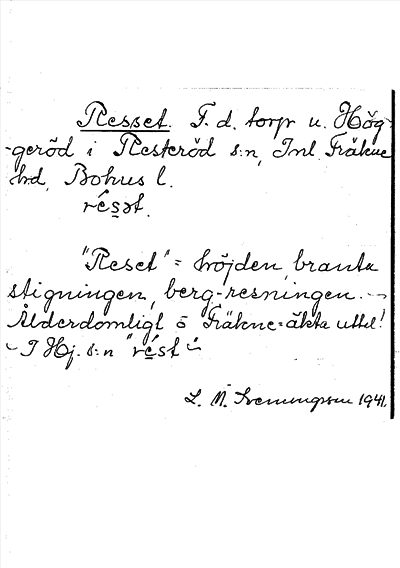 Resset. F. d. torp u. Hög-
geröd i Resteröd s:n, Inl. Fräkne
hd, Bohus l.
réset.
"Reset" = höjden, branta
stigningen, berg-resningen. –
Ålderdomligt o Fräkne=äkta uttal!
– I Hj. s:n "rést" –
L. M. Svenungsson 1941.